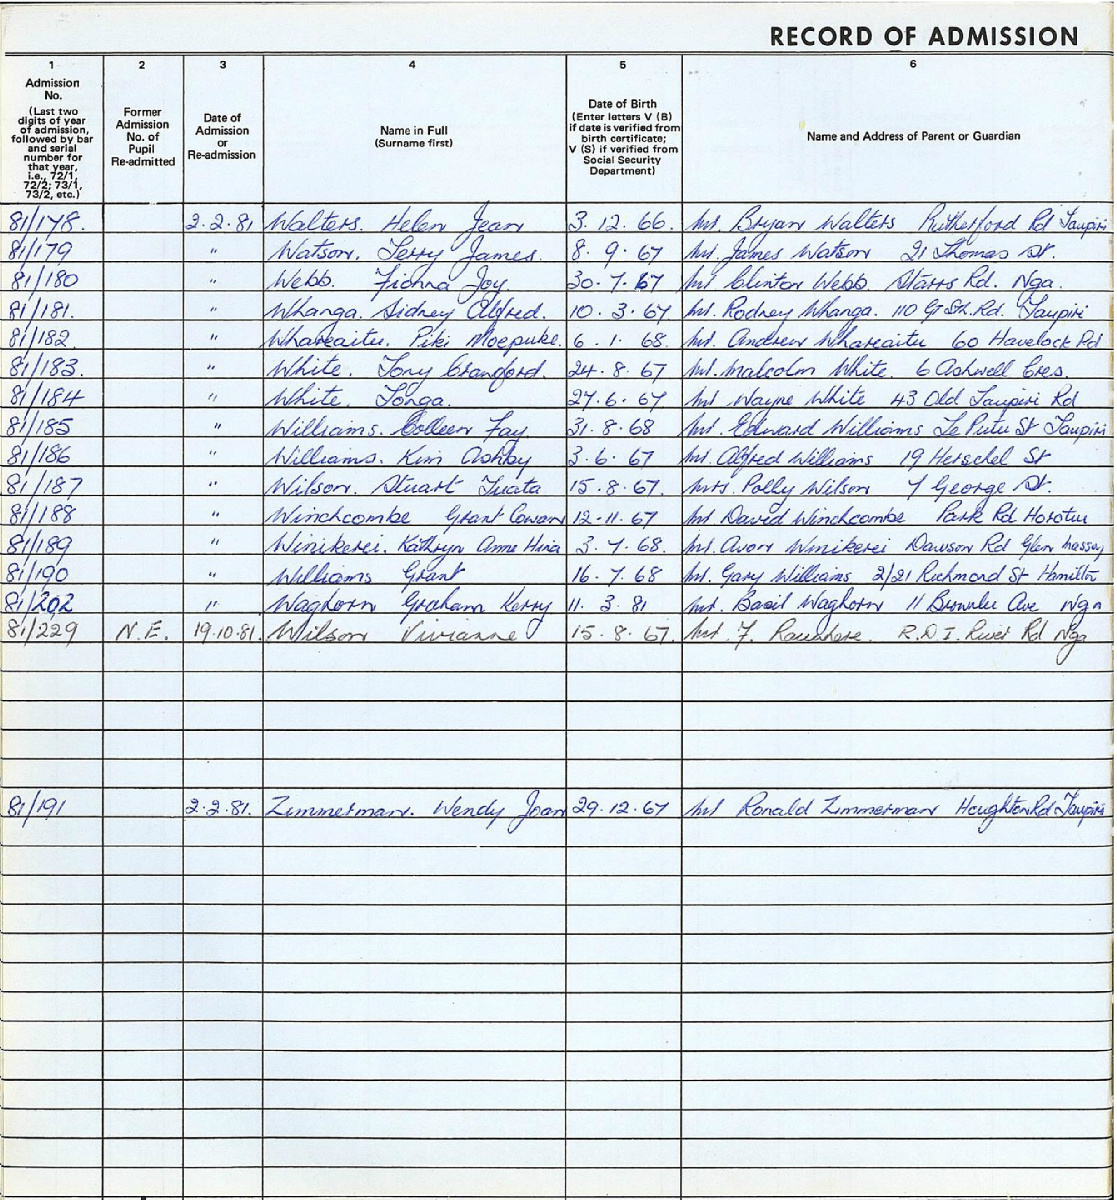 RECORD OF ADMISSION
1 2 3 4 5 6
Admission No. (Last two digits of year of admission, followed by bar and serial number for that year, i.e., 72/1, 72/2; 73/1, 73/2, etc.)
Former Admission No. of Pupil Re-admitted
Date of Admission or Re-admission
Name in Full (Surname first)
Date of Birth (Enter letters V (B) if date is verified from birth certificate; V (S) if verified from Social Security Department)
Name and Address of Parent or Guardian
81/178. 2.2.81 Walters. Helen Jean 3.12.66. Mr. Bryan Walters Rutherford Rd Taupiri
81/179 " Watson. Terry James. 8.9.67 Mr. James Watson 21 Thomas St.
81/180 " Webb. Fionna Joy. 30.7.67 Mr Clinton Webb. Starrs Rd. Nga.
81/181. " Whanga. Sidney Alfred. 10.3.67 Mr. Rodney Whanga. 110 Gt Sth. Rd. Taupiri
81/182. " Whareaitu. Piki Moepuke. 6.1.68. Mr. Andrew Whareaitu 60 Havelock Rd
81/183. " White. Tony Cranford. 24.8.67 Mr. Malcolm White. 6 Ashwell Cres.
81/184 " White. Tonga. 27.6.67 Mr Wayne White 43 Old Taupiri Rd
81/185 " Williams. Colleen Fay 31.8.68 Mr. Edward Williams Te Putu St Taupiri
81/186 " Williams. Kim Ashby 3.6.67 Mr. Alfred Williams 19 Herschel St
81/187 " Wilson. Stuart Tuata 15.8.67. Mrs. Polly Wilson 7 George St.
81/188 " Winchcombe Grant Cowan 12.11.67 Mr David Winchcombe Park Rd Horotiu
81/189 " Winikerei. Kathryn Anne Hina 3.7.68. Mr. Avon Winikerei Dawson Rd Glen Massey
81/190 " Williams Grant 16.7.68 Mr. Gary Williams 2/21 Richmond St Hamilton
81/202 " Waghorn Graham Kerry 11.3.81 Mr. Basil Waghorn 11 Brownlee Ave Nga
81/229 N.E. 19.10.81. Wilson Vivianne 15.8.67. F. R.D.1. River Rd Nga
81/191 2.2.81. Zimmerman. Wendy Joan 29.12.67 Mr Ronald Zimmerman Houghton Rd Taupiri